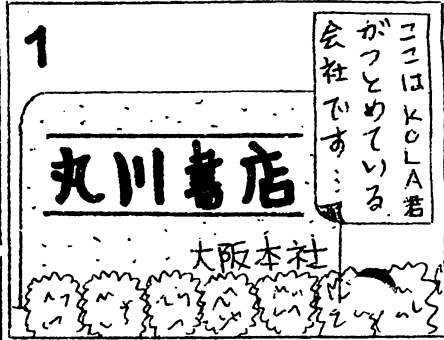 1
ここはKOLA君
がつとめている
会社です…
丸川書店
大阪本社